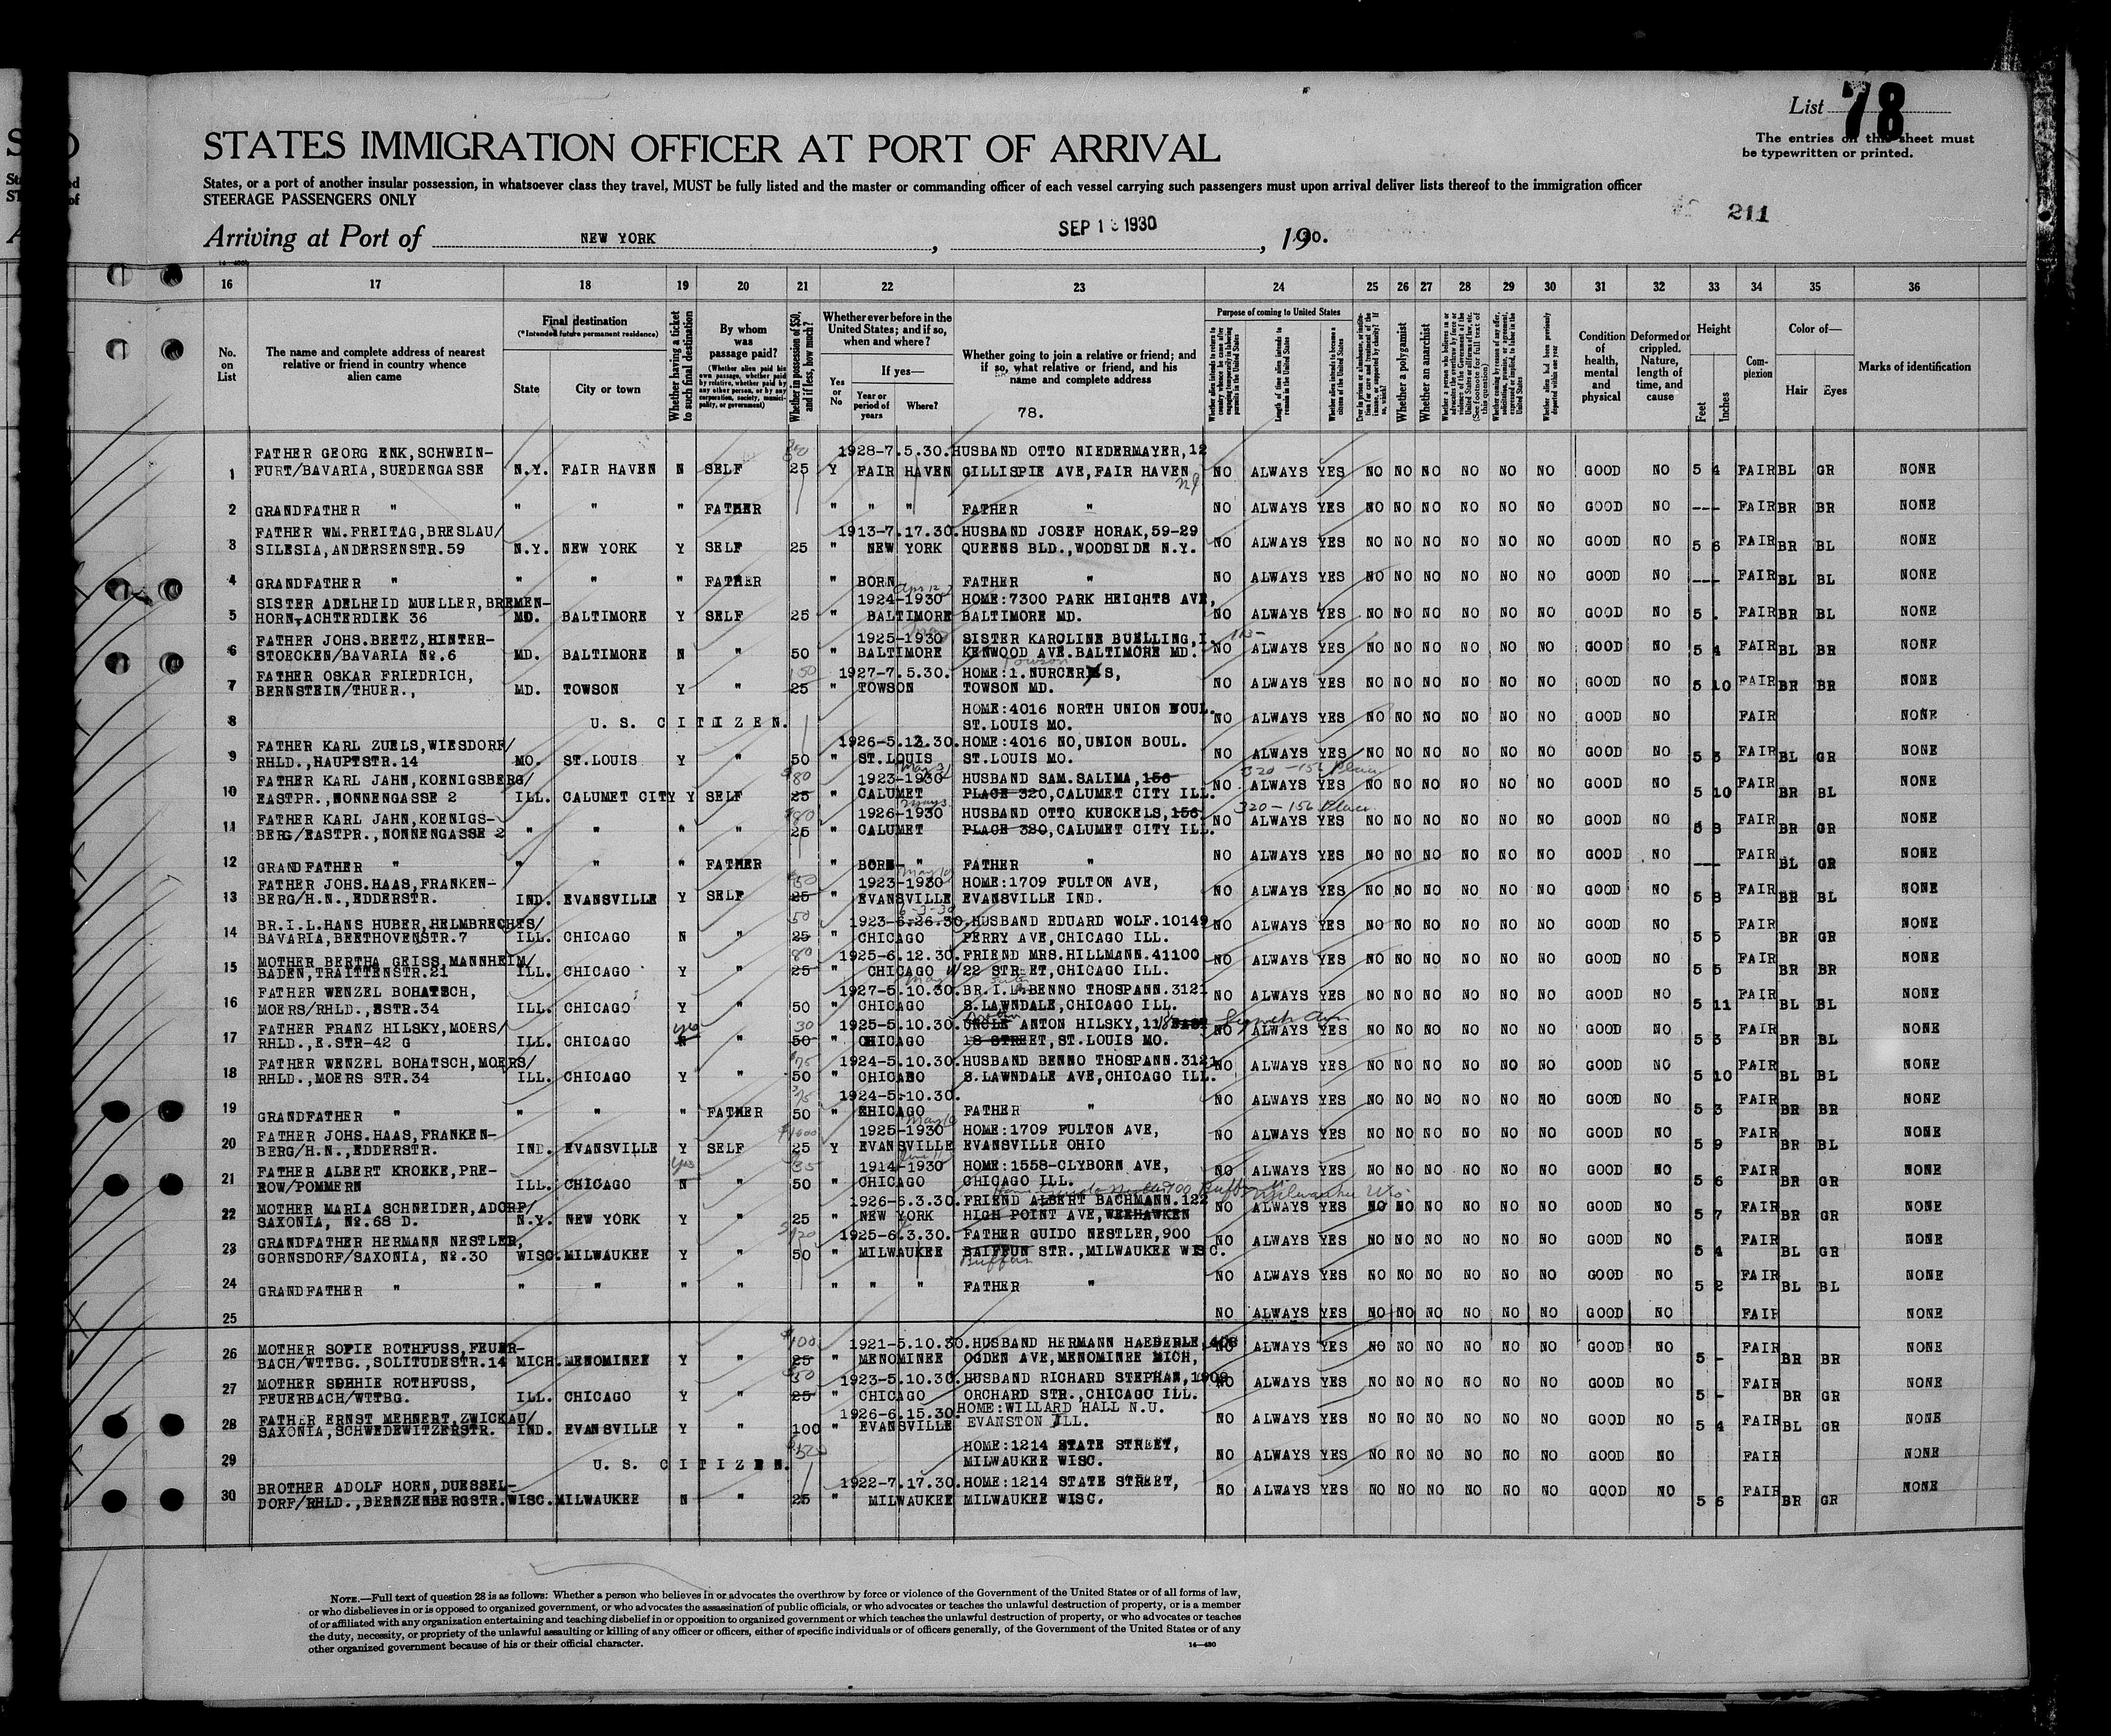 List 78
The entries on this sheet must
be typewritten or printed.
STATES IMMIGRATION OFFICER AT PORT OF ARRIVAL
States, or a port of another insular possession, in whatsoever class they travel, MUST be fully listed and the master or commanding officer of each vessel carrying such passengers must upon arrival deliver lists thereof to the immigration officer
STEERAGE PASSENGERS ONLY
211
Arriving at Port of NEW YORK, SEP 1 1930, 19 30.
16 17 18 19 20 21 22 23 24 25 26 27 28 29 30 31 32 33 34 35 36
No. on List
The name and complete address of nearest relative or friend in country whence alien came
Final destination
(*Intended future permanent residence)
State
City or town
Whether having a ticket to such final destination
By whom was passage paid?
(Whether alien paid his own passage, whether paid by relative, whether paid by any other person, or by any corporation, society, municipality, or government)
Whether in possession of $50, and if less, how much?
Whether ever before in the United States; and if so, when and where?
Yes or No
If yes—
Year or period of years
Where?
Whether going to join a relative or friend; and if so, what relative or friend, and his name and complete address
78.
Purpose of coming to United States
Length of time alien intends to remain in the United States
Whether alien intends to become a citizen of the United States
Whether a polygamist
Whether an anarchist
Condition of health, mental and physical
Deformed or crippled. Nature, length of time, and cause
Height
Feet
Inches
Complexion
Color of—
Hair
Eyes
Marks of identification
1 FATHER GEORG ENK, SCHWEIN- 1928-7.5.30. HUSBAND OTTO NIEDERMAYER, 12
FURT/BAVARIA, SUEDENGASSE N.Y. FAIR HAVEN N SELF 25 Y FAIR HAVEN GILLISPIE AVE, FAIR HAVEN NO ALWAYS YES NO NO NO NO NO NO GOOD NO 5 4 FAIR BL GR NONE
2 GRANDFATHER " " " " FATHER " " " FATHER " NO ALWAYS YES NO NO NO NO NO NO GOOD NO --- FAIR BR BR NONE
3 FATHER WM. FREITAG, BRESLAU/ 1913-7.17.30. HUSBAND JOSEF HORAK, 59-29
SILESIA, ANDERSENSTR. 59 N.Y. NEW YORK Y SELF 25 " NEW YORK QUEENS BLD., WOODSIDE N.Y. NO ALWAYS YES NO NO NO NO NO NO GOOD NO 5 6 FAIR BR BL NONE
4 GRANDFATHER " " " " FATHER " BORN FATHER " NO ALWAYS YES NO NO NO NO NO NO GOOD NO --- FAIR BL BL NONE
5 SISTER ADELHEID MUELLER, BREMEN- 1924-1930 HOME: 7300 PARK HEIGHTS AVE,
HORN, ACHTERDIEK 36 MD. BALTIMORE Y SELF 25 " BALTIMORE BALTIMORE MD. NO ALWAYS YES NO NO NO NO NO NO GOOD NO 5 . FAIR BR BL NONE
6 FATHER JOHS. BEETZ, HINTER- 1925-1930 SISTER KAROLINE BUELLING, I.
STOECKEN/BAVARIA No. 6 MD. BALTIMORE N " 50 " BALTIMORE KENWOOD AVE. BALTIMORE MD. NO ALWAYS YES NO NO NO NO NO NO GOOD NO 5 4 FAIR BL BR NONE
7 FATHER OSKAR FRIEDRICH, 1927-7.5.30. HOME: 1. NURCERXS,
BERNSTEIN/THUER., MD. TOWSON Y " 25 " TOWSON TOWSON MD. NO ALWAYS YES NO NO NO NO NO NO GOOD NO 5 10 FAIR BR BR NONE
8 U. S. CITIZEN. HOME: 4016 NORTH UNION BOUL.
ST. LOUIS MO. NO ALWAYS YES NO NO NO NO NO NO GOOD NO FAIR NONE
9 FATHER KARL ZUELS, WIESDORF/ 1926-5.13.30. HOME: 4016 NO, UNION BOUL.
RHLD., HAUPTSTR. 14 MO. ST. LOUIS Y " 50 " ST. LOUIS ST. LOUIS MO. NO ALWAYS YES NO NO NO NO NO NO GOOD NO 5 3 FAIR BL GR NONE
10 FATHER KARL JAHN, KOENIGSBERG/ 1923-1930 HUSBAND SAM. SALIMA, 156 320-156 Place
EASTPR., NONNENGASSE 2 ILL. CALUMET CITY Y SELF 80 25 " CALUMET PLACE 320, CALUMET CITY ILL. NO ALWAYS YES NO NO NO NO NO NO GOOD NO 5 10 FAIR BR BL NONE
11 FATHER KARL JAHN, KOENIGS- 1926-1930 HUSBAND OTTO KUECKELS, 156 320-156 Place
BERG/EASTPR., NONNENGASSE 2 " " " " 80 25 " CALUMET PLACE 320, CALUMET CITY ILL. NO ALWAYS YES NO NO NO NO NO NO GOOD NO 5 3 FAIR BR GR NONE
12 GRANDFATHER " " " " FATHER " BORN- " FATHER " NO ALWAYS YES NO NO NO NO NO NO GOOD NO --- FAIR BL GR NONE
13 FATHER JOHS. HAAS, FRANKEN- May 10 1923-1930 HOME: 1709 FULTON AVE,
BERG/H.N., EDDERSTR. IND. EVANSVILLE Y SELF 25 " EVANSVILLE EVANSVILLE IND. NO ALWAYS YES NO NO NO NO NO NO GOOD NO 5 8 FAIR BR BL NONE
14 BR.I.L. HANS HUBER, HELMBRECHTS/ 1923-6.26.30. HUSBAND EDUARD WOLF. 10149
BAVARIA, BEETHOVENSTR. 7 ILL. CHICAGO N " 50 25 " CHICAGO PERRY AVE, CHICAGO ILL. NO ALWAYS YES NO NO NO NO NO NO GOOD NO 5 5 FAIR BR GR NONE
15 MOTHER BERTHA GEISS, MANNHEIM/ 1925-6.12.30. FRIEND MRS. HILLMANN. 41100
BADEN, TRAITTENSTR. 21 ILL. CHICAGO Y " 80 25 " CHICAGO W 22 STREET, CHICAGO ILL. NO ALWAYS YES NO NO NO NO NO NO GOOD NO 5 5 FAIR BR BR NONE
16 FATHER WENZEL BOHATSCH, 1927-5.10.30. BR.I.L. BENNO THOSPANN. 3121
MOERS/RHLD., ESTR. 34 ILL. CHICAGO Y " 50 " CHICAGO S. LAWNDALE, CHICAGO ILL. NO ALWAYS YES NO NO NO NO NO NO GOOD NO 5 11 FAIR BL BL NONE
17 FATHER FRANZ HILSKY, MOERS/ yes 30 1925-5.10.30. UNCLE ANTON HILSKY, 11 EAST
RHLD., E. STR-42 G ILL. CHICAGO N " 50 " CHICAGO 18 STREET, ST. LOUIS MO. NO ALWAYS YES NO NO NO NO NO NO GOOD NO 5 3 FAIR BR BL NONE
18 FATHER WENZEL BOHATSCH, MOERS/ 75 1924-5.10.30. HUSBAND BENNO THOSPANN. 3121
RHLD., MOERS STR. 34 ILL. CHICAGO Y " 50 " CHICAGO S. LAWNDALE AVE, CHICAGO ILL. NO ALWAYS YES NO NO NO NO NO NO GOOD NO 5 10 FAIR BL BL NONE
19 1924-5-10.30.
GRANDFATHER " " " " FATHER 50 " CHICAGO FATHER " NO ALWAYS YES NO NO NO NO NO NO GOOD NO 5 3 FAIR BR BR NONE
20 FATHER JOHS. HAAS, FRANKEN- May 10 1925-1930 HOME: 1709 FULTON AVE,
BERG/H.N., EDDERSTR. IND. EVANSVILLE Y SELF 25 Y EVANSVILLE EVANSVILLE OHIO NO ALWAYS YES NO NO NO NO NO NO GOOD NO 5 9 FAIR BR BL NONE
21 FATHER ALBERT KROEKE, PRE- yes 35 1914-1930 HOME: 1558-CLYBORN AVE,
ROW/POMMERN ILL. CHICAGO N " 50 " CHICAGO CHICAGO ILL. NO ALWAYS YES NO NO NO NO NO NO GOOD NO 5 6 FAIR BR GR NONE
22 MOTHER MARIA SCHNEIDER, ADORF/ 1926-6.3.30. FRIEND ALBERT BACHMANN. 122
SAXONIA, No. 68 D. N.Y. NEW YORK Y " 25 " NEW YORK HIGH POINT AVE, WEEHAWKEN NO ALWAYS YES NO NO NO NO NO NO GOOD NO 5 7 FAIR BR GR NONE
23 GRANDFATHER HERMANN NESTLER, 1925-6.3.30. FATHER GUIDO NESTLER, 900
GORNSDORF/SAXONIA, No. 30 WISC. MILWAUKEE Y " 50 " MILWAUKEE BAIFFUN STR., MILWAUKEE WISC. NO ALWAYS YES NO NO NO NO NO NO GOOD NO 5 4 FAIR BL GR NONE
24 GRANDFATHER " " " " " " " " FATHER " NO ALWAYS YES NO NO NO NO NO NO GOOD NO 5 2 FAIR BL BL NONE
25 NO ALWAYS YES NO NO NO NO NO NO GOOD NO FAIR NONE
26 MOTHER SOFIE ROTHFUSS, FEUER- 100 1921-5.10.30. HUSBAND HERMANN HAEDERLE, 408
BACH/WTTBG., SOLITUDESTR. 14 MICH. MENOMINEE Y " 25 " MENOMINEE OGDEN AVE, MENOMINEE MICH, NO ALWAYS YES NO NO NO NO NO NO GOOD NO 5 - FAIR BR BR NONE
27 MOTHER SOPHIE ROTHFUSS, 50 1923-5.10.30. HUSBAND RICHARD STEPHAN, 1909
FEUERBACH/WTTBG. ILL. CHICAGO Y " 25 " CHICAGO ORCHARD STR., CHICAGO ILL. NO ALWAYS YES NO NO NO NO NO NO GOOD NO 5 - FAIR BR GR NONE
28 FATHER ERNST MEHNERT, ZWICKAU/ 1926-6.15.30. HOME: WILLARD HALL N.U.
SAXONIA, SCHWEDEWITZERSTR. IND. EVANSVILLE Y " 100 " EVANSVILLE EVANSTON ILL. NO ALWAYS YES NO NO NO NO NO NO GOOD NO 5 4 FAIR BL GR NONE
29 U. S. CITIZEN. HOME: 1214 STATE STREET,
MILWAUKEE WISC. NO ALWAYS YES NO NO NO NO NO NO GOOD NO FAIR NONE
30 BROTHER ADOLF HORN, DUESSEL- 1922-7.17.30. HOME: 1214 STATE STREET,
DORF/RHLD., BERNZENBERGSTR. WISC. MILWAUKEE N " 25 " MILWAUKEE MILWAUKEE WISC. NO ALWAYS YES NO NO NO NO NO NO GOOD NO 5 6 FAIR BR GR NONE
NOTE.—Full text of question 28 is as follows: Whether a person who believes in or advocates the overthrow by force or violence of the Government of the United States or of all forms of law,
or who disbelieves in or is opposed to organized government, or who advocates the assassination of public officials, or who advocates or teaches the unlawful destruction of property, or is a member
of or affiliated with any organization entertaining and teaching disbelief in or opposition to organized government or which teaches the unlawful destruction of property, or who advocates or teaches
the duty, necessity, or propriety of the unlawful assaulting or killing of any officer or officers, either of specific individuals or of officers generally, of the Government of the United States or of any
other organized government because of his or their official character.
14—430